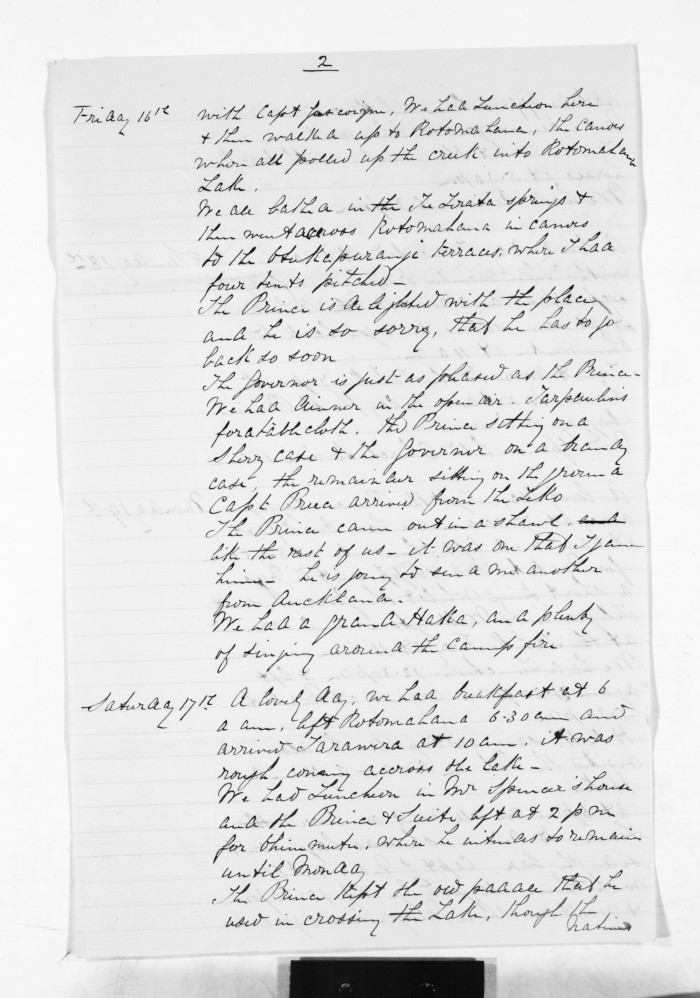 2
Friday 16th with Capt Gascoigne, We had Luncheon here
& then walked up to Rotomahana, the canoes
when all polled up the creek into Rotomahana
Lake.
We all bathed in the Te Tarata springs &
then went accross Rotomahana in canoes
to the Otukapurangi terraces, where I had
four tents pitched –
The Prince is delighted with the place
and he is so sorry, that he has to go
back so soon
The Governor is just as pleased as the Prince –
We had dinner in the open air. Tarpaulins
for a tablecloth. the Prince sitting on a
Sherry case & the Governor on a brandy
case the remainder sitting on the ground
Capt Bruce arrived from the Lake
The Prince came out in a shawl
like the rest of us – it was one that I gave
him – he is going to send me another
from Auckland.
We had a grand Haka, and plenty
of singing around the camp fire
Saturday 17th A lovely day, we had breakfast at 6
a am, left Rotomahana 6.30 am and
arrived Tarawera at 10 am. it was
rough coming accross the lake –
We had Luncheon in Mr Spencer's house
and the Prince & Suite left at 2 pm
for Ohinemutu, where he intends to remain
until Monday
The Prince kept the old paddle that he
used in crossing the Lake, though the
natives